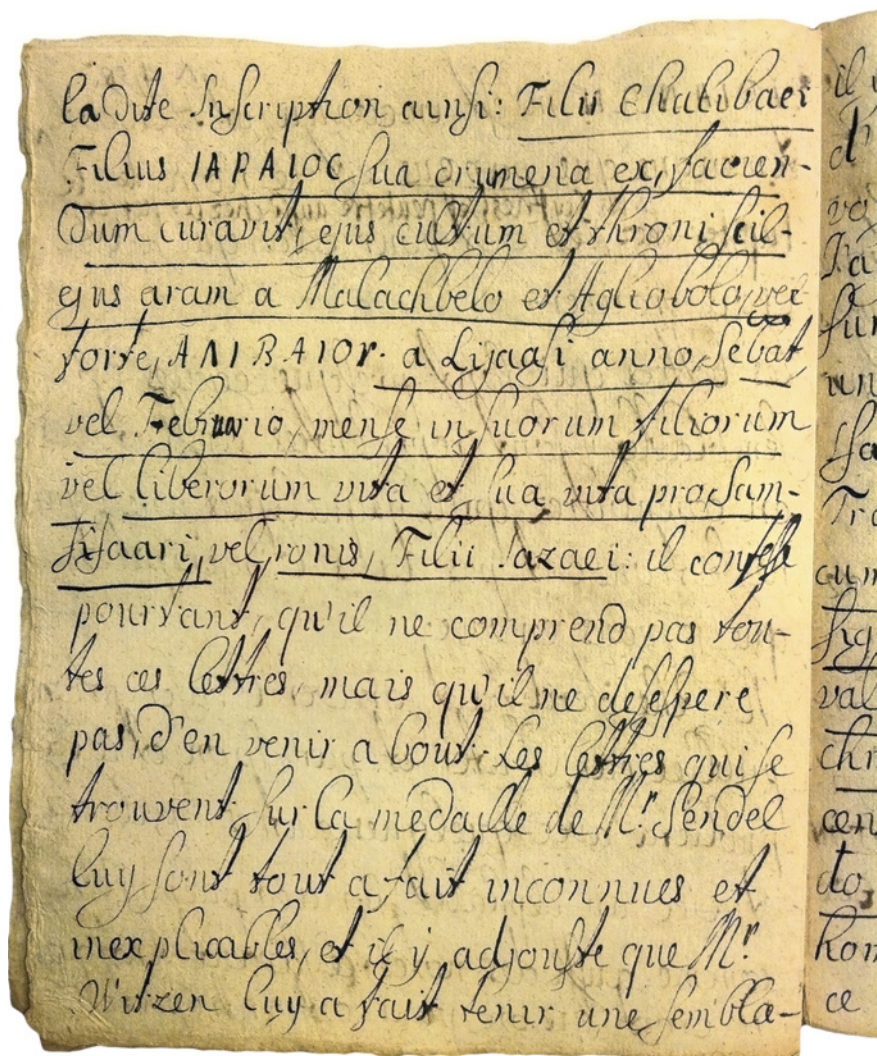 la dite Inscription ainsi: Filii Chalibaei
Filius IAPAIOC sua crumena ex, facien-
dum curavit, ejus cultum et throni scil-
ejus aram a Malachbelo et Agliobolo, vel
forte, ANIBAIOY. a Lijaasi anno, Sebat,
vel Februario, mense in suorum filiorum
vel liberorum vita et sua vita pro Sam-
sisaari, vel ronis, Filii Sazaei: il confesse
pourtant, qu'il ne comprend pas tou-
tes ces lettres, mais qu'il ne desespere
pas, d'en venir a bout. Les lettres qui se
trouvent sur la medaille de Mr. Sendel
luy sont tout a fait inconnues et
inexplicables, et il y adjouste que Mr.
Witzen luy a fait tenir une sembla-
il
d'
vo
sur
un
Tra
cum
sig
val
chr
cen
do,
hom
ce